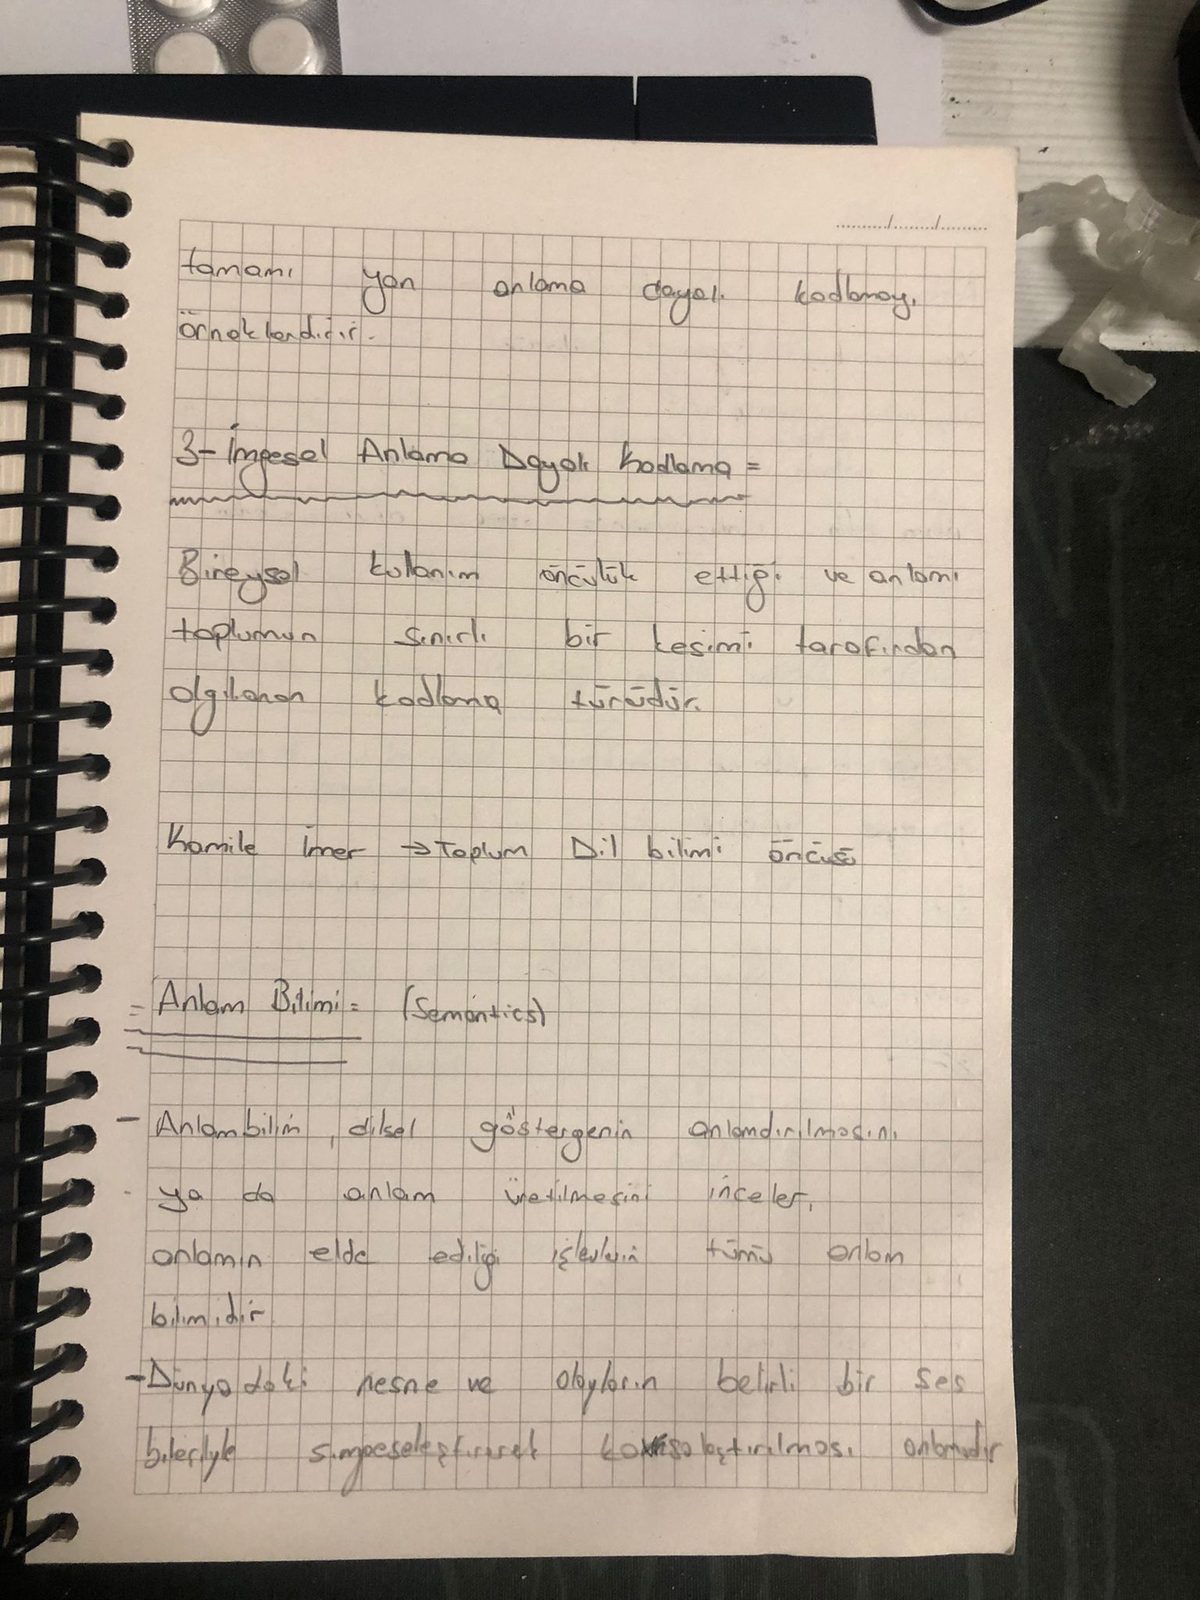 tamamı yan anlama dayalı kodlamayı
örneklendirir.
3- İmgesel Anlama Dayalı Kodlama =
Bireysel kullanım öncülük ettiği ve anlamı
toplumun sınırlı bir kesimi tarafından
algılanan kodlama türüdür.
Kamile İmer → Toplum Dil bilimi öncüsü
= Anlam Bilimi = (Semantics)
- Anlambilim, dilsel göstergenin anlamdırılmasını
ya da anlam üretilmesini inceler,
anlamın elde ediliği işlevlerin tümü anlam
bilimidir
- Dünyadaki nesne ve olayların belirli bir ses
simgeseleştirerek anlamıdır